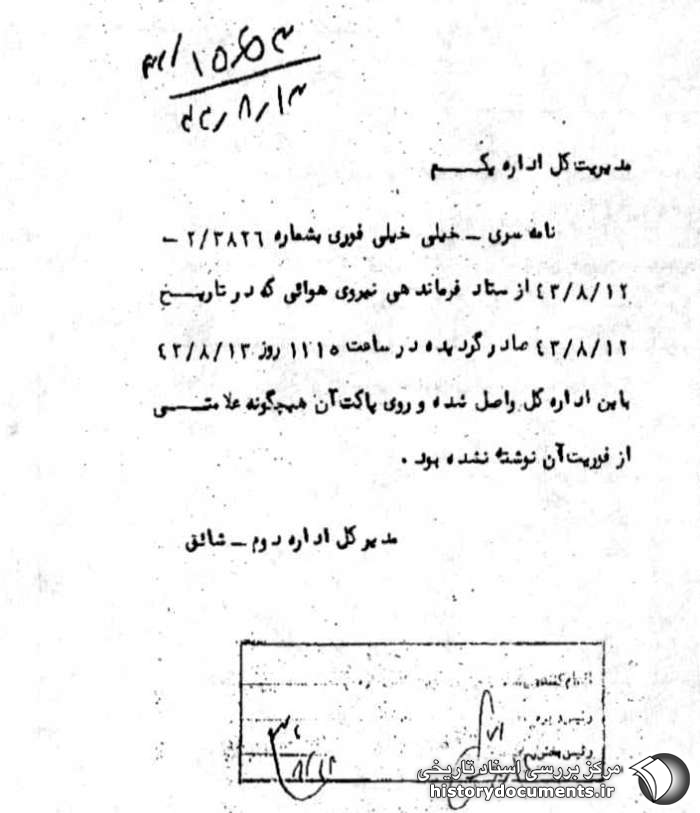 ۴۳/۸/۱۳
مدیریت کل اداره یکم
نامه سری – خیلی خیلی فوری بشماره ۲/۳۸۲٦ –
٤۳/۸/۱۲ از ستاد فرماندهی نیروی هوائی که در تاریخ
٤۳/۸/۱۲ صادر گردیده در ساعت ۱۱۱۵ روز ٤۳/۸/۱۳
باین اداره کل واصل شده و روی پاکت آن هیچگونه علامتی
از فوریت آن نوشته نشده بود .
مدیر کل اداره دوم – شائق
اقدام کننده
رئیس دایره
رئیس بخش
مرکز بررسی اسناد تاریخی
historydocuments.ir